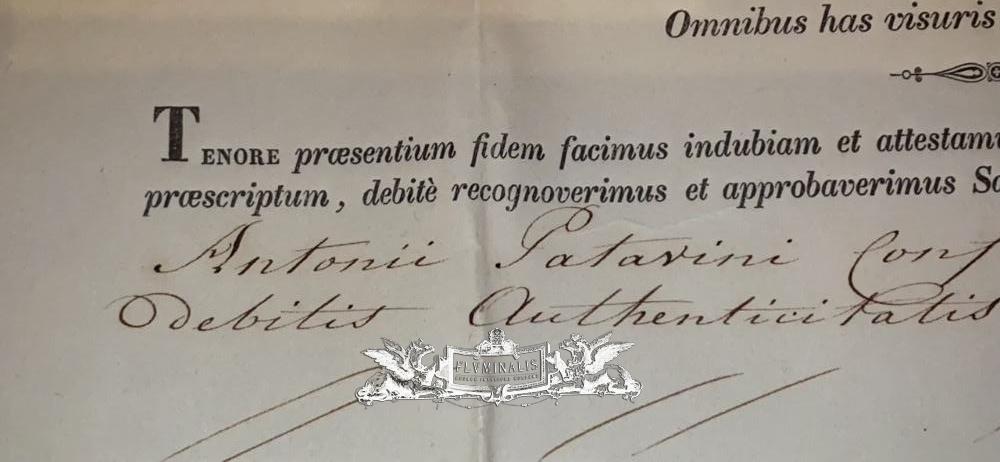 Omnibus has visuris
TENORE præsentium fidem facimus indubiam et attestamu
præscriptum, debitè recognoverimus et approbaverimus Sa
Antonii Patavini Conf
Debitis Authenticitatis
FLVMINALIS